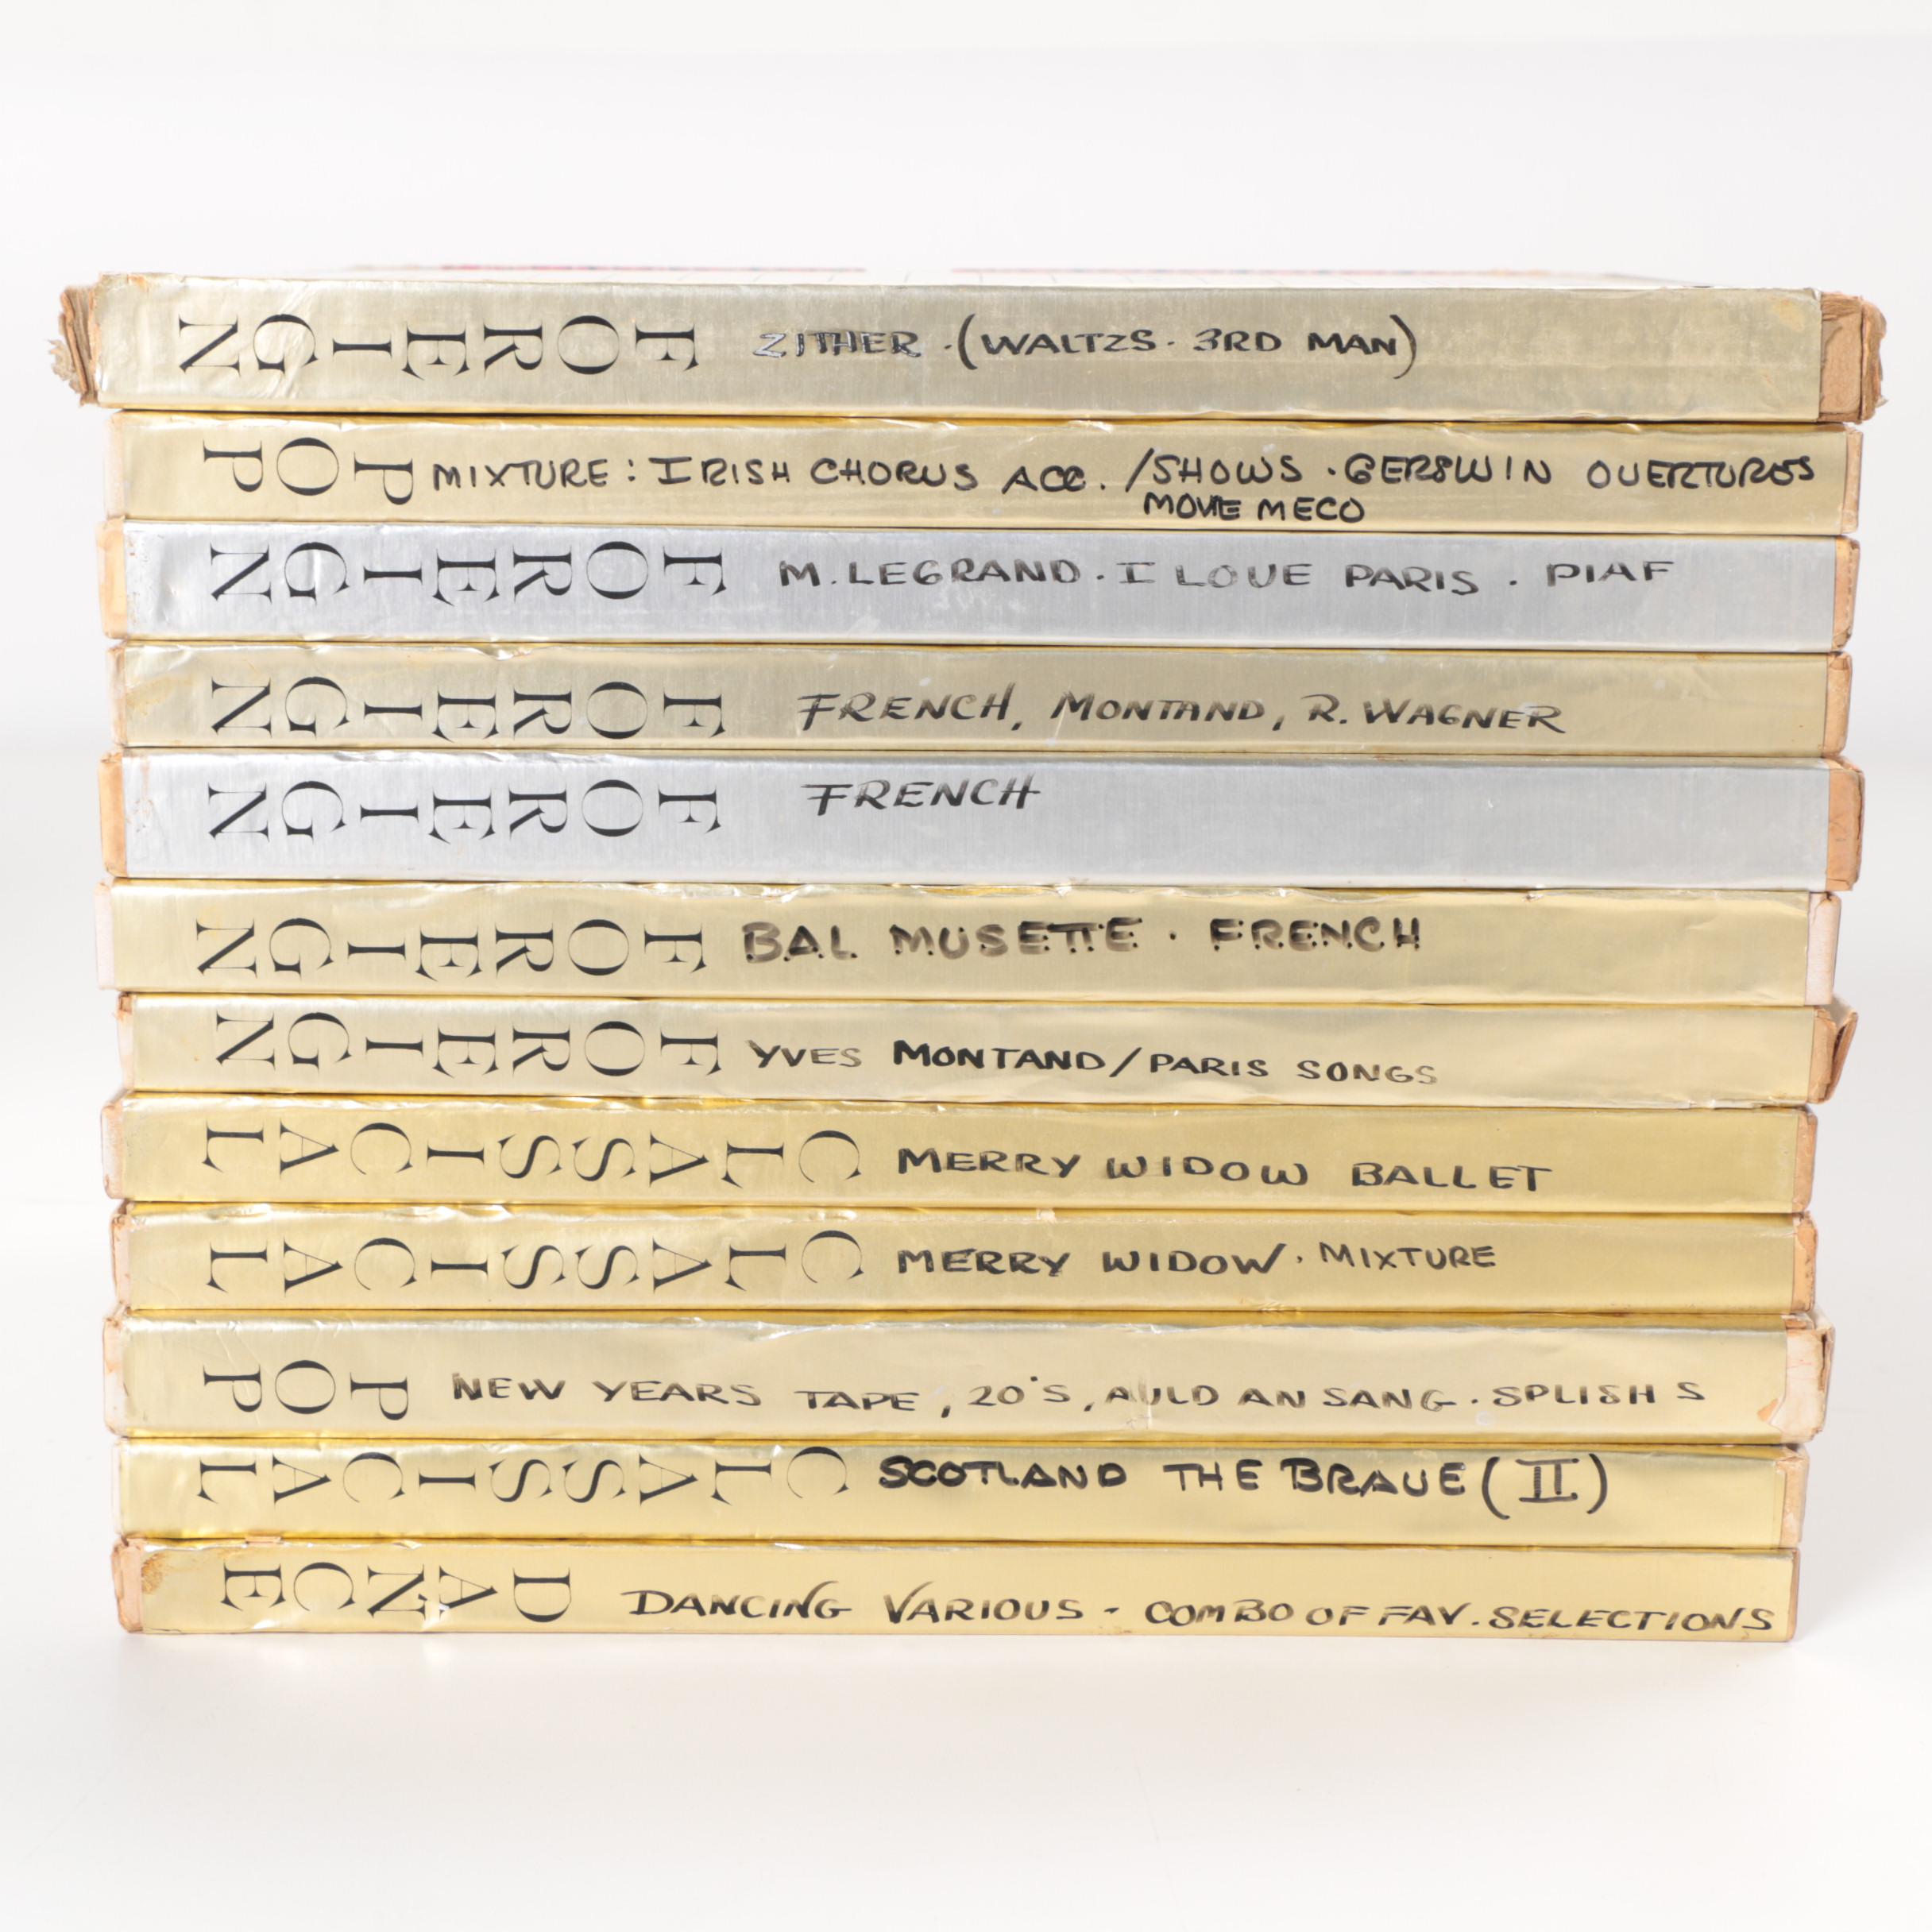 FOREIGN ZITHER · (WALTZS · 3RD MAN)
POP MIXTURE : IRISH CHORUS ACC. / SHOWS · GERSWIN OVERTURES
MOVIE MECO
FOREIGN M. LEGRAND · I LOVE PARIS · PIAF
FOREIGN FRENCH, MONTAND, R. WAGNER
FOREIGN FRENCH
FOREIGN BAL MUSETTE · FRENCH
FOREIGN YVES MONTAND / PARIS SONGS
CLASSICAL MERRY WIDOW BALLET
CLASSICAL MERRY WIDOW · MIXTURE
POP NEW YEARS TAPE, 20'S, AULD AN SANG · SPLISH S
CLASSICAL SCOTLAND THE BRAVE (II)
DANCE DANCING VARIOUS - COMBO OF FAV. SELECTIONS